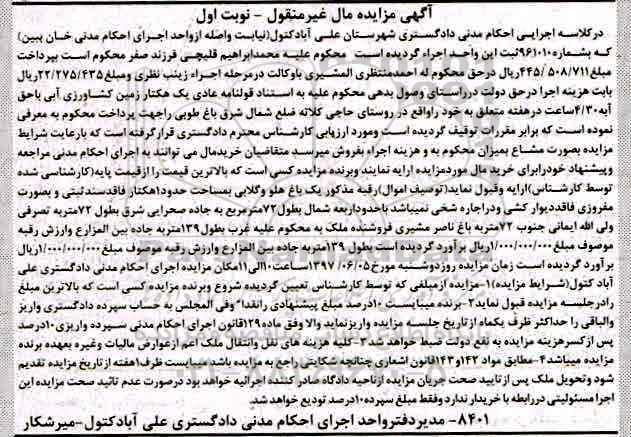 آگهی مزایده مال غیرمنقول - نوبت اول
درکلاسه اجرایی احکام مدنی دادگستری شهرستان علی آبادکتول(نیابت واصله ازواحد اجرای احکام مدنی خان ببین)
که بشماره ۹۶۱۰۱۰ثبت این واحد اجراء گردیده است محکوم علیه محمدابراهیم قلیچی فرزند صفر محکوم است بپرداخت
مبلغ ۴۴۵/۵۰۸/۷۱۱ریال درحق محکوم له احمدمنتظری المشیری باوکالت درمرحله اجراء زینب نظری ومبلغ ۲۲/۲۷۵/۴۳۵ریال
بابت هزینه اجرا درحق دولت درراستای وصول بدهی محکوم علیه به استناد قولنامه عادی یک هکتار زمین کشاورزی آبی باحق
آبه ۴/۳۰ساعت درهفته متعلق به خود راواقع در روستای حاجی کلاته ضلع شمال شرق باغ طوبی راجهت پرداخت محکوم به معرفی
نموده است که برابر مقررات توقیف گردیده است ومورد ارزیابی کارشناس محترم دادگستری قرارگرفته است که بارعایت شرایط
مزایده بصورت مشاع بمیزان محکوم به و هزینه اجراء بفروش میرسد متقاضیان خریدمال می توانند به اجرای احکام مدنی مراجعه
وپیشنهاد خودرابرای خرید مال موردمزایده ارایه نمایند وبرنده مزایده کسی است که بالاترین قیمت را ازقیمت پایه(کارشناسی شده
توسط کارشناس)ارایه وقبول نماید(توصیف اموال)رقبه مذکور یک باغ هلو وگلابی بمساحت حدود۱هکتار فاقدسندثبتی و بصورت
مفروزی فاقددیوار کشی ودراجاره شخی نمیباشد باحدوداربعه شمال بطول۷۲مترمربع به جاده صحرایی شرق بطول ۷۲متربه تصرفی
ولی الله ایمانی جنوب ۷۲متربه باغ ناصر مشیری فروشنده ملک به محکوم علیه غرب بطول ۱۳۹متربه جاده بین المزارع وارزش رقبه
موصوف مبلغ ۱/۰۰۰/۰۰۰/۰۰۰ریال برآورد گردیده است بطول ۱۳۹متربه جاده بین المزارع وارزش رقبه موصوف مبلغ ۱/۰۰۰/۰۰۰/۰۰۰ریال
برآورد گردیده است زمان مزایده روزدوشنبه مورخ ۱۳۹۷/۰۶/۰۵ساعت۱۰الی۱۱مکان مزایده اجرای احکام مدنی دادگستری علی
آباد کتول(شرایط مزایده)۱-مزایده ازمبلغی که توسط کارشناس تعیین گردیده شروع وبرنده مزایده کسی است که بالاترین مبلغ
رادرجلسه مزایده قبول نماید۲-برنده میبایست ۱۰درصد مبلغ پیشنهادی رانقدا" وفی المجلس به حساب سپرده دادگستری واریز
والباقی را حداکثر ظرف یکماه ازتاریخ جلسه مزایده واریزنماید والا وفق ماده ۱۲۹قانون اجرای احکام مدنی سپرده واریزی ۱۰درصد
پس ازکسرهزینه مزایده به نفع دولت ضبط خواهد شد ۳-کلیه هزینه های نقل وانتقال ملک اعم ازعوارض مالیات وغیره بعهده برنده
مزایده میباشد۴-مطابق مواد ۱۴۲و۱۴۳قانون اشعاری چنانچه شکایتی راجع به مزایده باشدمیبایست ظرف۱هفته ازتاریخ مزایده تقدیم
شود وتحویل ملک پس ازتایید صحت جریان مزایده ازناحیه دادگاه صادر کننده اجرائیه خواهد بود درصورت عدم تائید صحت مزایده این
اجرا مسئولیتی دررابطه با خریدار ندارد وفقط مبلغ سپرده۱۰درصد تودیع خواهد شد.
۸۴۰۱- مدیردفترواحد اجرای احکام مدنی دادگستری علی آبادکتول-میرشکار